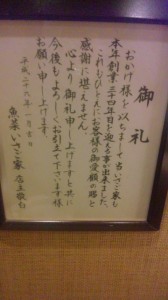 御礼
おかげ様を以ちまして古いさご家も
本年創業三十四年目を迎える事が出来ました。
これもひとえにお客様の御愛顧の賜と
感謝に堪えません。
心より御礼申し上げますと共に
今後もよろしくお引立て下さいます様
お願い申し上げます。
平成二十八年一月吉日
魚菜いさご家 店主敬白